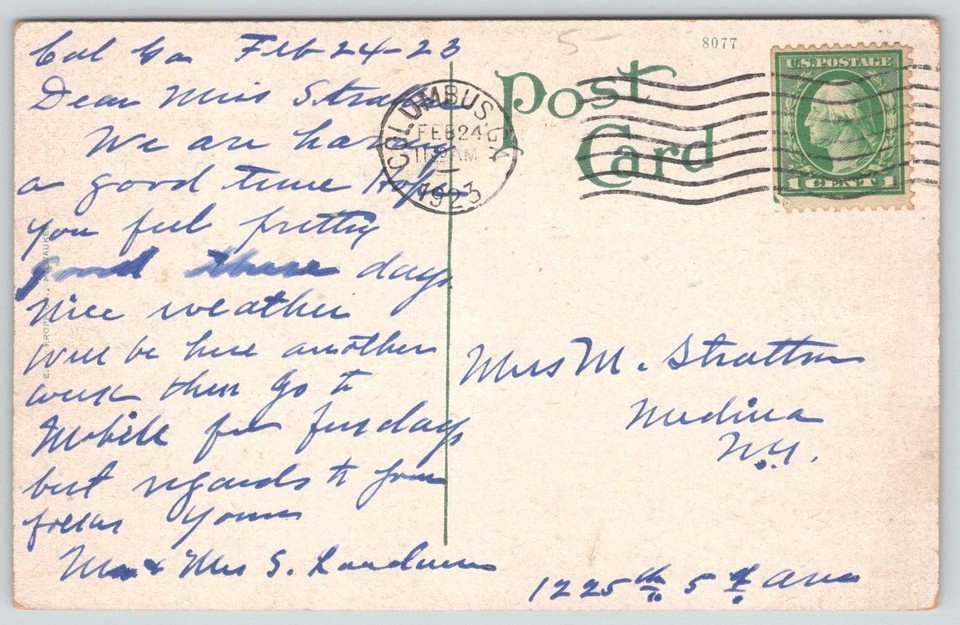 Col Ga Feb 24-23
Dear Miss Stratton
We are having
a good time Hope
you feel pretty
good these days
nice weather
will be here another
week then go to
Mobile for few days
best regards to your
folks Yours
Mr & Mrs S.
8077
Post
Card
COLUMBUS, GA
FEB 24
AM
1923
U.S. POSTAGE
1 CENT 1
Mrs M. Stratton
Medina
N.Y.
1225 5 Ave
5